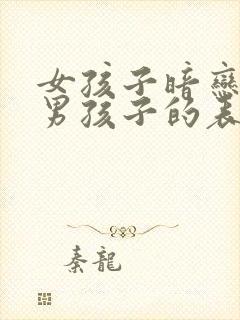 女孩子暗戀
男孩子的表
秦龍